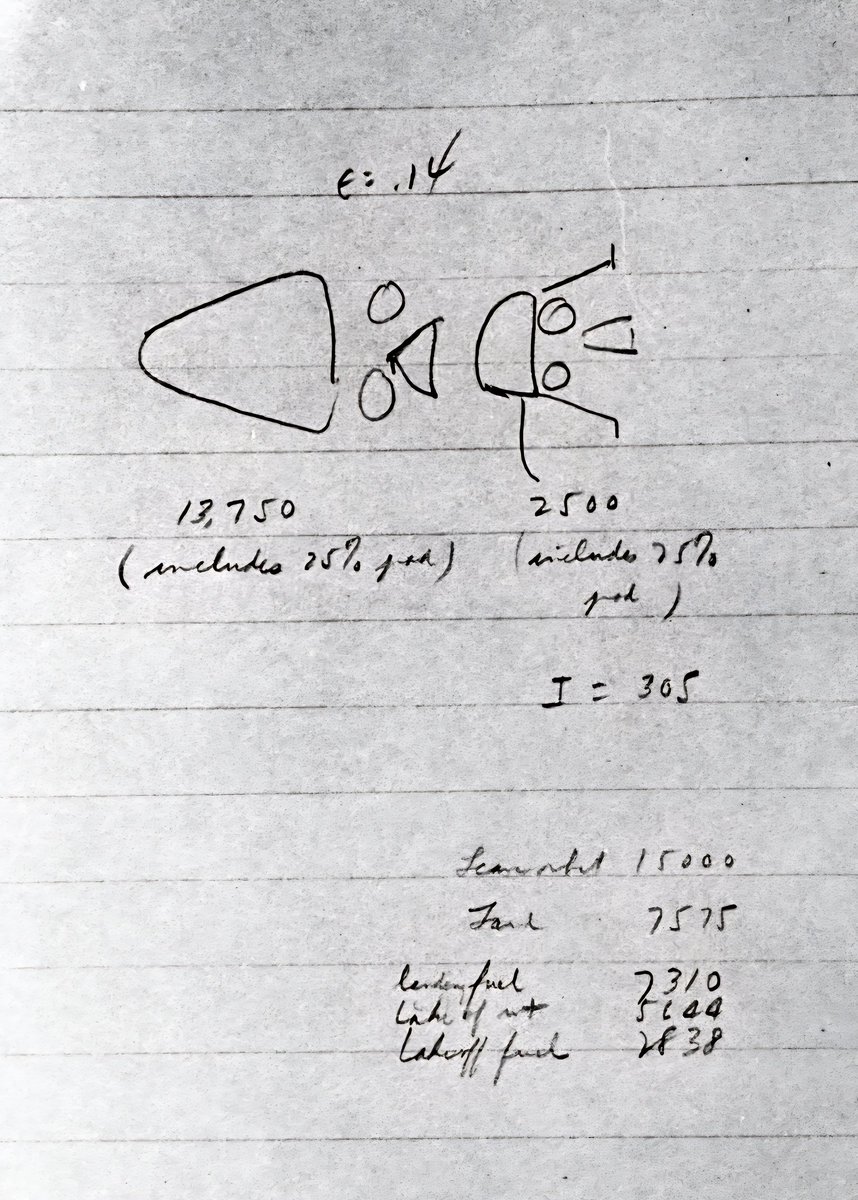 ε = .14
13,750
2500
(includes 25% pad)
(includes 25%
pad)
I = 305
Leave orbit 15000
Land 7575
landing fuel 7310
take off wt 5644
takeoff fuel 2838